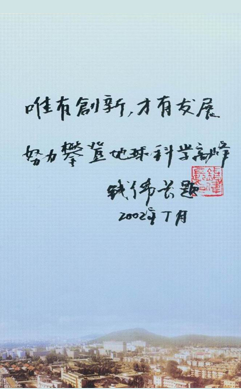 唯有創新,才有发展
努力攀登地球科学高峰
钱伟长题
2002年丁月